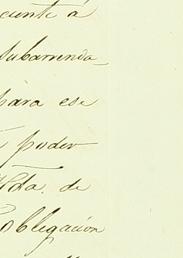 cente á
subarrenda-
para ese
poder
Vda. de
obligacion